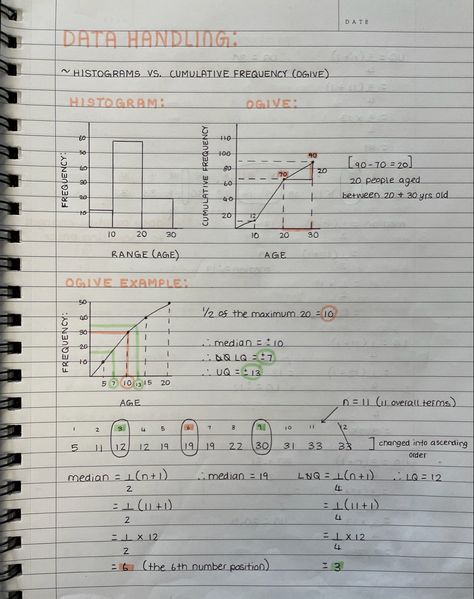 DATE
DATA HANDLING:
~ HISTOGRAMS VS. CUMULATIVE FREQUENCY (OGIVE)
HISTOGRAM: OGIVE:
FREQUENCY:
60
50
40
30
20
10
10 20 30
RANGE (AGE)
CUMULATIVE FREQUENCY
110
100
80
60
40
20
12
70
90
20
10 20 30
AGE
[90-70 = 20]
20 people aged
between 20 + 30 yrs old
OGIVE EXAMPLE:
FREQUENCY:
50
40
30
20
10
5 7 10 13 15 20
AGE
1/2 of the maximum 20 = 10
∴ median = ± 10
∴ LQ = ± 7
∴ UQ = ± 13
n = 11 (11 overall terms)
1 2 3 4 5 6 7 8 9 10 11 12
5 11 12 12 19 19 19 22 30 31 33 33 ] changed into ascending
order
median = 1/2 (n+1) ∴ median = 19 LQ = 1/4 (n+1) ∴ LQ = 12
= 1/2 (11+1) = 1/4 (11+1)
= 1/2 x 12 = 1/4 x 12
= 6 (the 6th number position) = 3